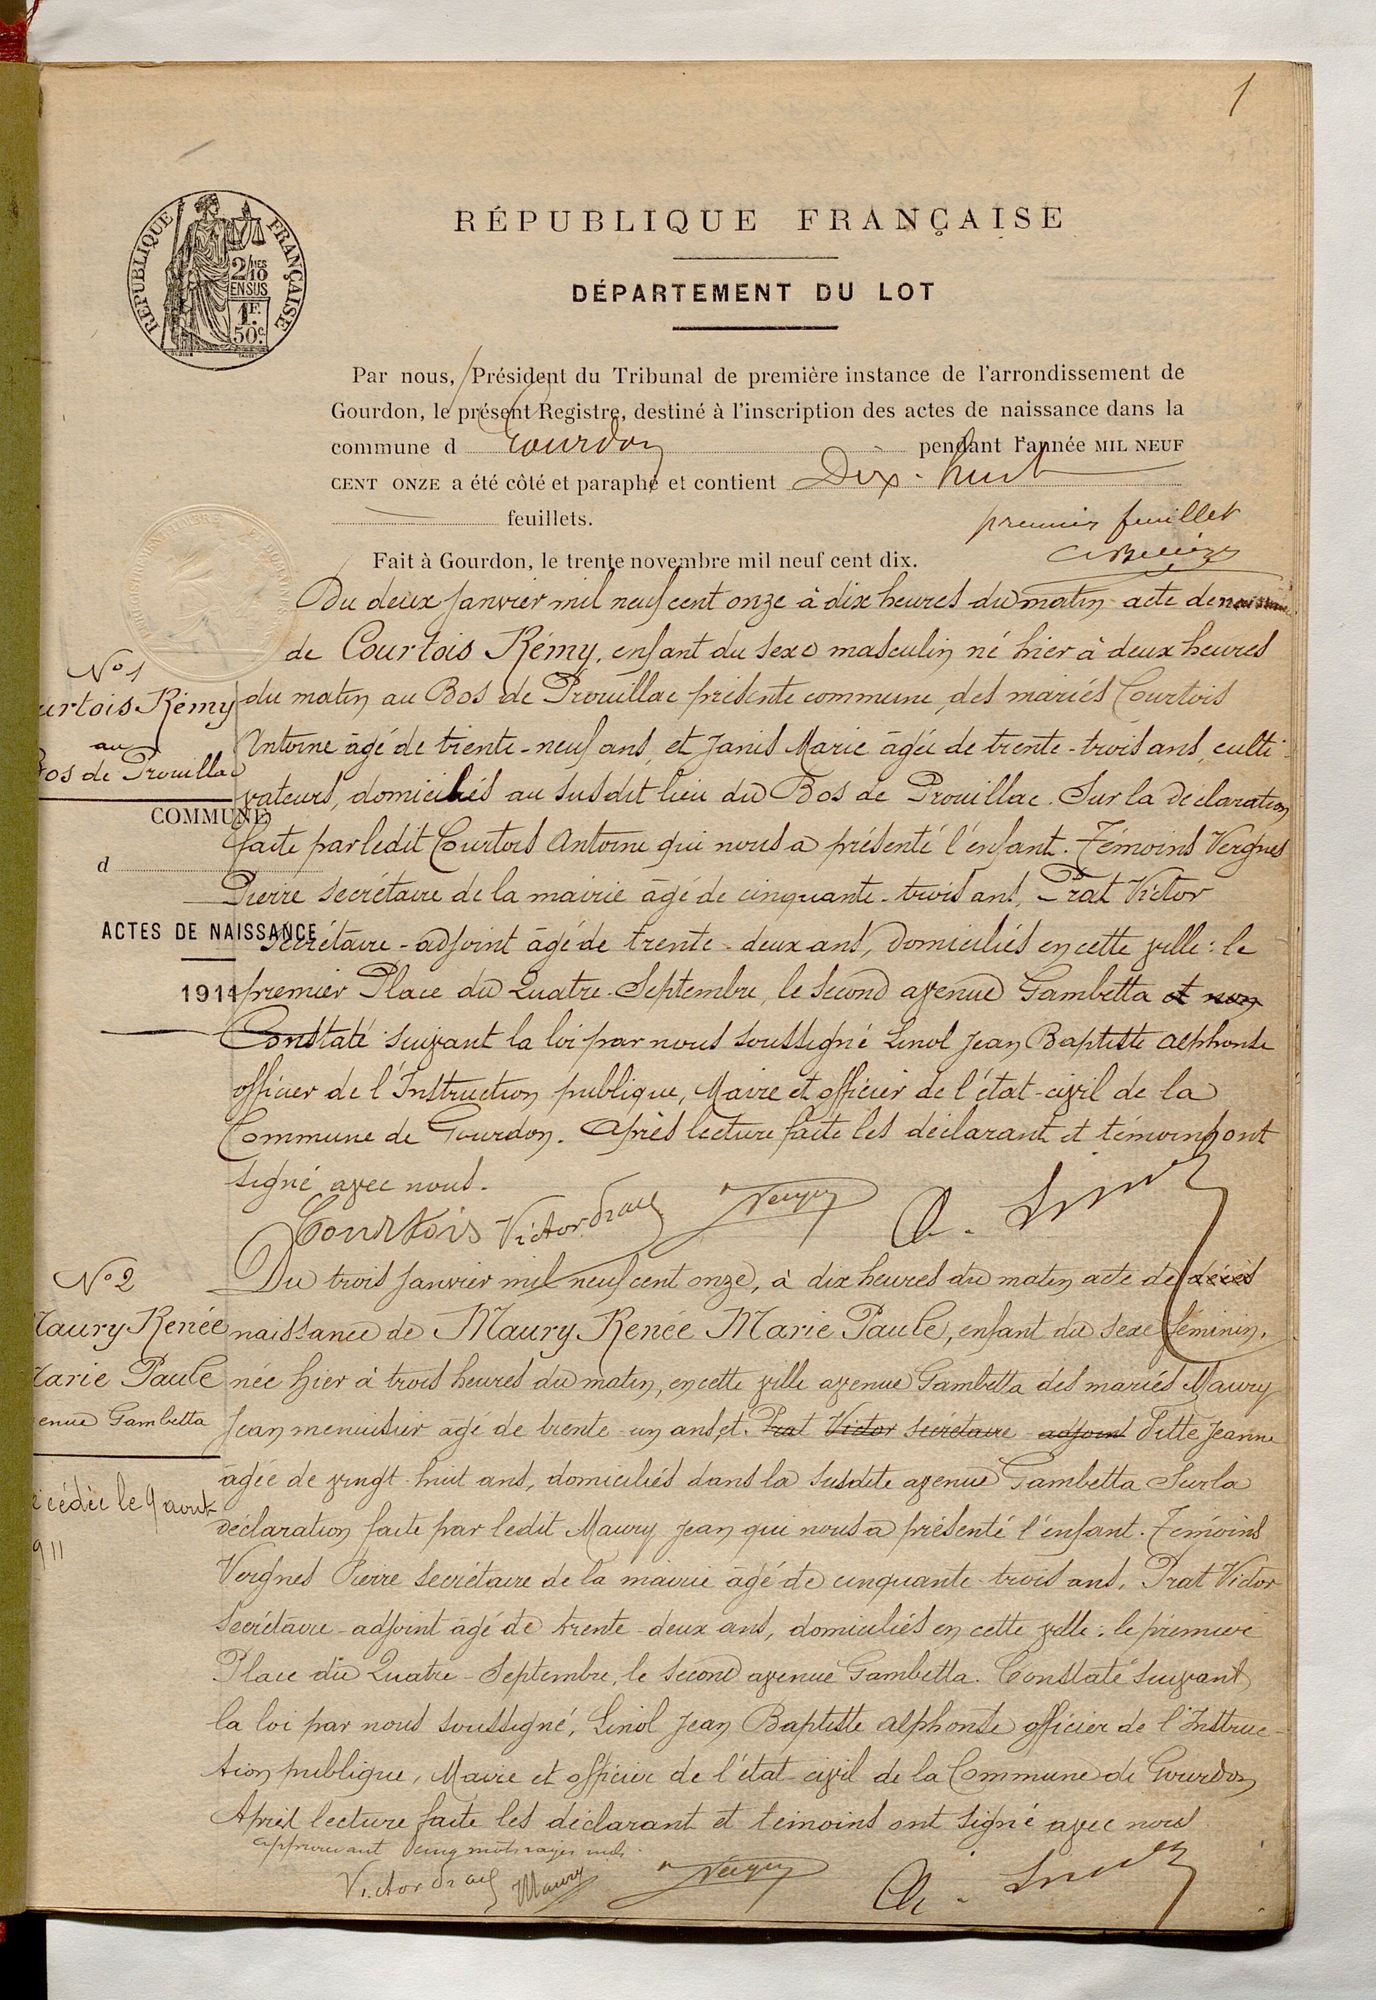 1
RÉPUBLIQUE FRANÇAISE
RÉPUBLIQUE FRANÇAISE
2/10MES
EN SUS
1F.
50c.
DÉPARTEMENT DU LOT
Par nous, Président du Tribunal de première instance de l'arrondissement de
Gourdon, le présent Registre, destiné à l'inscription des actes de naissance dans la
commune d Gourdon pendant l'année MIL NEUF
CENT ONZE a été côté et paraphé et contient Dix-huit
feuillets.
premier feuillet
Fait à Gourdon, le trente novembre mil neuf cent dix.
Du deux janvier mil neuf cent onze à dix heures du matin acte de naissance
de Courtois Rémy, enfant du sexe masculin né hier à deux heures
du matin au Bos de Prouillac présente commune, des mariés Courtois
Antoine âgé de trente-neuf ans, et Janis Marie âgée de trente-trois ans, culti-
vateurs, domiciliés au susdit lieu du Bos de Prouillac. Sur la déclaration
faite par ledit Courtois Antoine qui nous a présenté l'enfant. Témoins Vergnes
Pierre secrétaire de la mairie âgé de cinquante-trois ans, Prat Victor
Secrétaire-adjoint âgé de trente-deux ans, domiciliés en cette ville: le
premier Place du Quatre-Septembre, le second avenue Gambetta et non
Constaté suivant la loi par nous soussigné Linol Jean Baptiste Alphonse
officier de l'Instruction publique, Maire et officier de l'état-civil de la
Commune de Gourdon. Après lecture faite les déclarant et témoins ont
signé avec nous.
Courtois Victor Prat Vergnes A. Linol
N° 1
urtois Rémy
au
Bos de Prouillac
COMMUNE
d
ACTES DE NAISSANCE
1911
N° 2
Maury Renée
Marie Paule
enue Gambetta
écédée le 9 août
911
Du trois janvier mil neuf cent onze, à dix heures du matin acte de décès
naissance de Maury Renée Marie Paule, enfant du sexe féminin,
née hier à trois heures du matin, en cette ville avenue Gambetta des mariés Maury
Jean menuisier âgé de trente-un ans, et Prat Victor secrétaire adjoint Fitte Jeanne
âgée de vingt-huit ans, domiciliés dans la susdite avenue Gambetta Sur la
déclaration faite par ledit Maury Jean qui nous a présenté l'enfant. Témoins
Vergnes Pierre secrétaire de la mairie âgé de cinquante-trois ans, Prat Victor
Secrétaire-adjoint âgé de trente-deux ans, domiciliés en cette ville: le premier
Place du Quatre-Septembre, le second avenue Gambetta. Constaté suivant
la loi par nous soussigné, Linol Jean Baptiste Alphonse officier de l'Instruc-
tion publique, Maire et officier de l'état-civil de la Commune de Gourdon
Après lecture faite les déclarant et témoins ont signé avec nous
approuvant cinq mots rayés nuls.
Victor Prat Maury Vergnes A. Linol